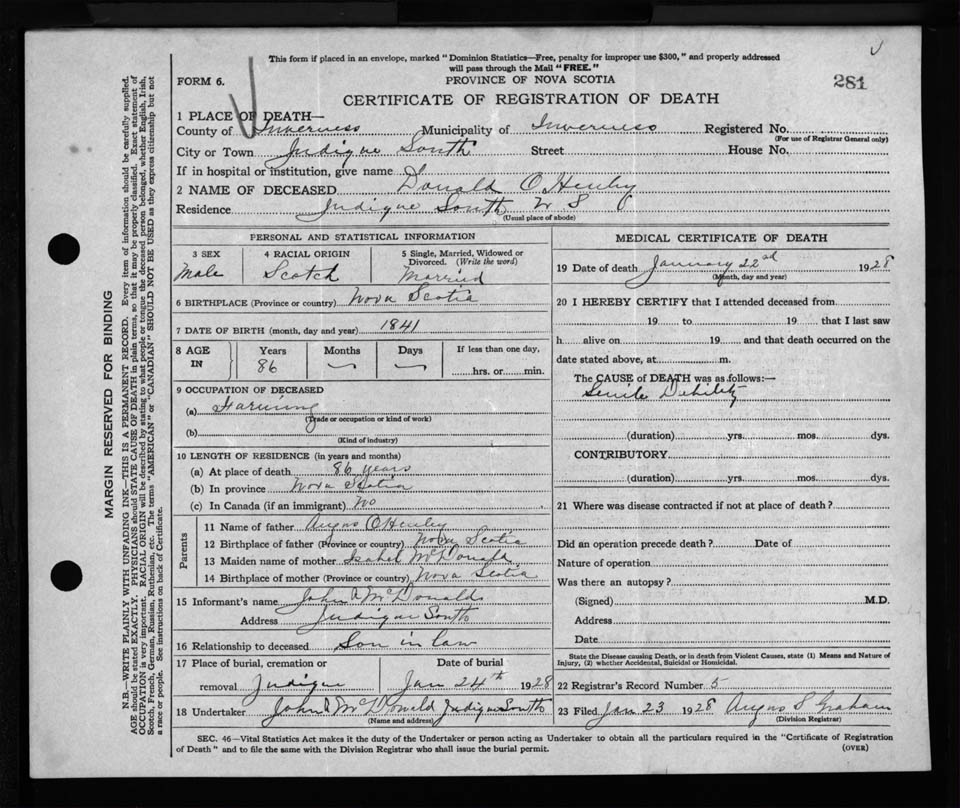 This form if placed in an envelope, marked "Dominion Statistics—Free, penalty for improper use $300," and properly addressed
will pass through the Mail "FREE."
FORM 6.
PROVINCE OF NOVA SCOTIA
281
CERTIFICATE OF REGISTRATION OF DEATH
1 PLACE OF DEATH—
County of Inverness Municipality of Inverness Registered No.
(For use of Registrar General only)
City or Town Judique South Street House No.
If in hospital or institution, give name
2 NAME OF DECEASED Donald O Henley
Residence Judique South N S
(Usual place of abode)
PERSONAL AND STATISTICAL INFORMATION
3 SEX 4 RACIAL ORIGIN 5 Single, Married, Widowed or
Divorced. (Write the word)
Male Scotch Married
6 BIRTHPLACE (Province or country) Nova Scotia
7 DATE OF BIRTH (month, day and year) 1841
8 AGE IN Years Months Days If less than one day,
86 hrs. or min.
9 OCCUPATION OF DECEASED
(a) Farming
(Trade or occupation or kind of work)
(b)
(Kind of industry)
10 LENGTH OF RESIDENCE (in years and months)
(a) At place of death 86 years
(b) In province Nova Scotia
(c) In Canada (if an immigrant) No
Parents
11 Name of father Angus O Henley
12 Birthplace of father (Province or country) Nova Scotia
13 Maiden name of mother Isabel McDonald
14 Birthplace of mother (Province or country) Nova Scotia
15 Informant's name John A McDonald
Address Judique South
16 Relationship to deceased Son in law
17 Place of burial, cremation or Date of burial
removal Judique Jan 24th 1928
18 Undertaker John A McDonald Judique South
(Name and address)
MEDICAL CERTIFICATE OF DEATH
19 Date of death January 22nd 1928
(Month, day and year)
20 I HEREBY CERTIFY that I attended deceased from
19 to 19 that I last saw
h alive on 19 and that death occurred on the
date stated above, at m.
The CAUSE of DEATH was as follows:—
Senile Debility
(duration) yrs. mos. dys.
CONTRIBUTORY
(duration) yrs. mos. dys.
21 Where was disease contracted if not at place of death?
Did an operation precede death? Date of
Nature of operation
Was there an autopsy?
(Signed) M.D.
Address
Date
State the Disease causing Death, or in death from Violent Causes, state (1) Means and Nature of
Injury, (2) whether Accidental, Suicidal or Homicidal.
22 Registrar's Record Number 5
23 Filed Jan 23 1928 Angus S Graham
(Division Registrar)
SEC. 46—Vital Statistics Act makes it the duty of the Undertaker or person acting as Undertaker to obtain all the particulars required in the "Certificate of Registration
of Death" and to file the same with the Division Registrar who shall issue the burial permit.
(OVER)
MARGIN RESERVED FOR BINDING
N.B.—WRITE PLAINLY WITH UNFADING INK—THIS IS A PERMANENT RECORD. Every item of information should be carefully supplied.
AGE should be stated EXACTLY. PHYSICIANS should STATE CAUSE OF DEATH in plain terms, so that it may be properly classified. Exact statement of
OCCUPATION is very important. RACIAL ORIGIN will be described by stating to what people or tongue the deceased person belonged, whether English, Irish,
Scotch, French, German, Russian, Ruthenian, etc. The terms "AMERICAN" or "CANADIAN" SHOULD NOT BE USED as they express citizenship but not
a race or people. See instructions on back of Certificate.